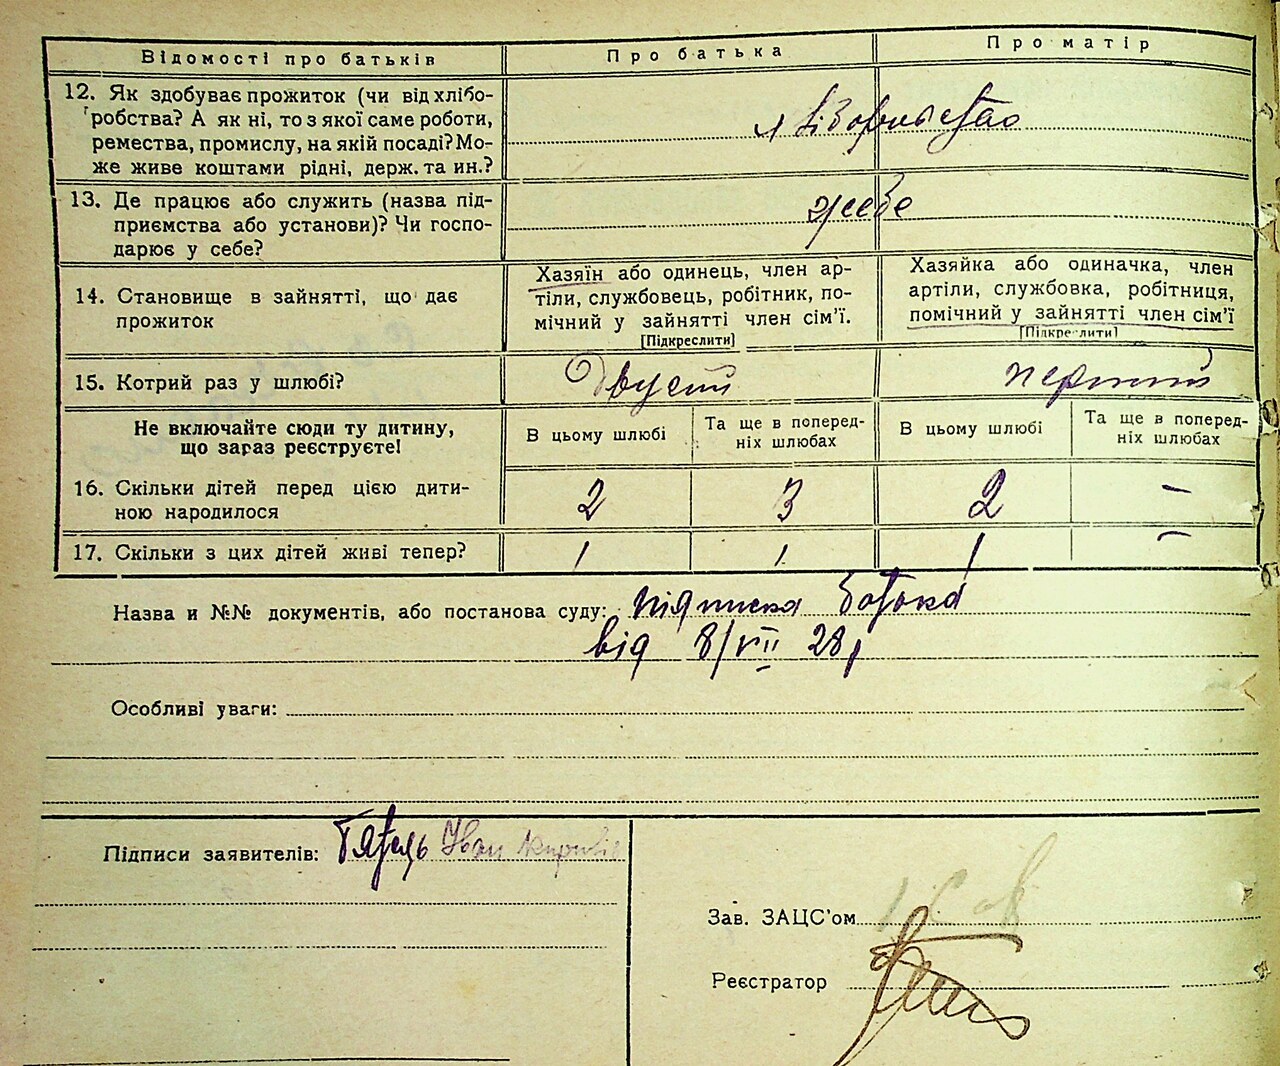 Відомості про батьків
Про батька
Про матір
12. Як здобуває прожиток (чи від хлібо-
робства? А як ні, то з якої саме роботи,
ремества, промислу, на якій посаді? Мо-
же живе коштами рідні, держ. та ин.?
13. Де працює або служить (назва під-
приємства або установи)? Чи госпо-
дарює у себе?
у себе
14. Становище в зайнятті, що дає
прожиток
Хазяїн або одинець, член ар-
тіли, службовець, робітник, по-
мічний у зайнятті член сім'ї.
[Підкреслити]
Хазяйка або одиначка, член
артіли, службовка, робітниця,
помічний у зайнятті член сім'ї
[Підкреслити]
15. Котрий раз у шлюбі?
перший
Не включайте сюди ту дитину,
що зараз реєструєте!
В цьому шлюбі
Та ще в поперед-
ніх шлюбах
В цьому шлюбі
Та ще в поперед-
ніх шлюбах
16. Скільки дітей перед цією дити-
ною народилося
2
3
2
–
17. Скільки з цих дітей живі тепер?
1
1
1
–
Назва и №№ документів, або постанова суду: підписка батька
від 8/VII 28р
Особливі уваги:
Підписи заявителів: Іван
Зав. ЗАЦС'ом
Реєстратор